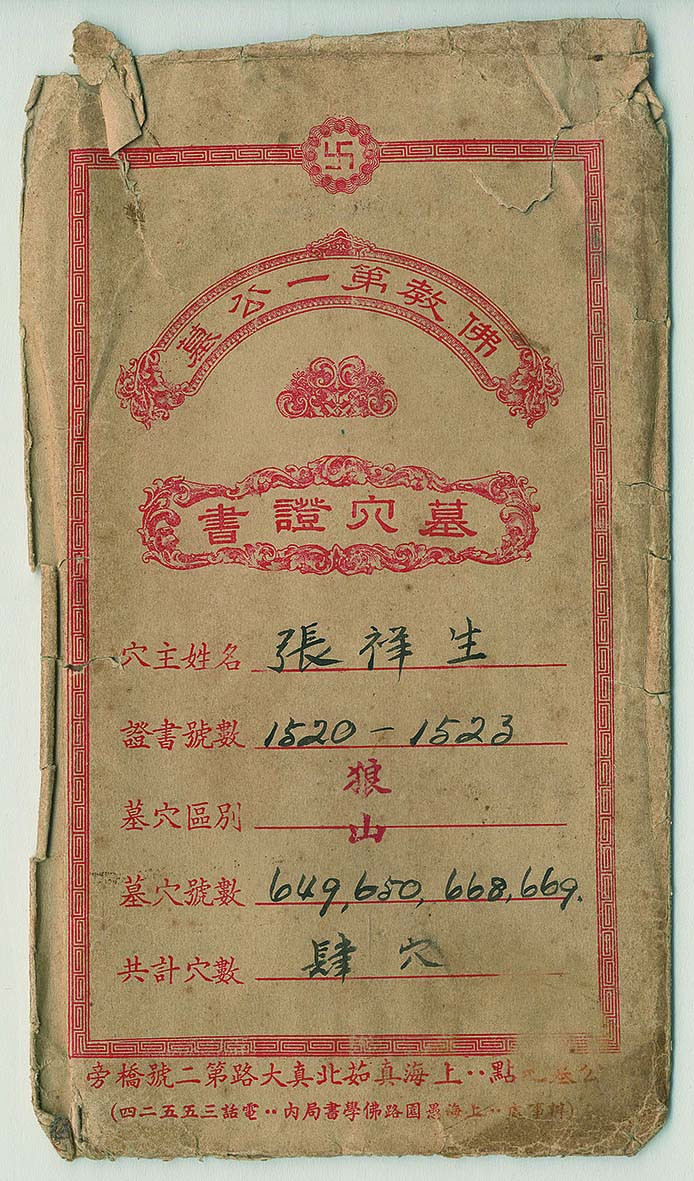 卐
佛教第一公墓
墓穴證書
穴主姓名 張祥生
證書號數 1520-1523
墓穴區別 狼山
墓穴號數 649,650,668,669.
共計穴數 肆穴
公墓地點：上海真茹北真大路第二號橋旁
(辦事處：上海愚園路佛學書局內：電話三五五二四)